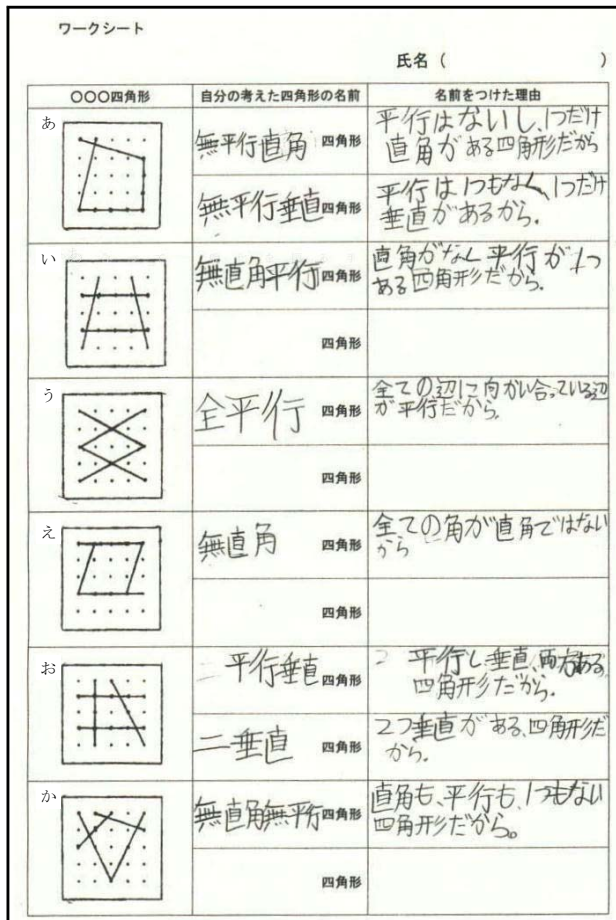 ワークシート
氏名（　　　　　　　）
○○○四角形　自分の考えた四角形の名前　名前をつけた理由
あ
無平行直角 四角形
平行はないし、1つだけ
直角がある四角形だから
無平行垂直 四角形
平行は1つもなく、1つだけ
垂直があるから。
い
無直角平行 四角形
直角がなく平行が1つ
ある四角形だから。
四角形
う
全平行 四角形
全ての辺に向かい合っている辺
が平行だから。
四角形
え
無直角 四角形
全ての角が直角ではない
から
四角形
お
平行垂直 四角形
平行し垂直、両方ある
四角形だから。
二垂直 四角形
2つ垂直がある、四角形だ
から。
か
無直角無平行 四角形
直角も、平行も、1つもない
四角形だから。
四角形